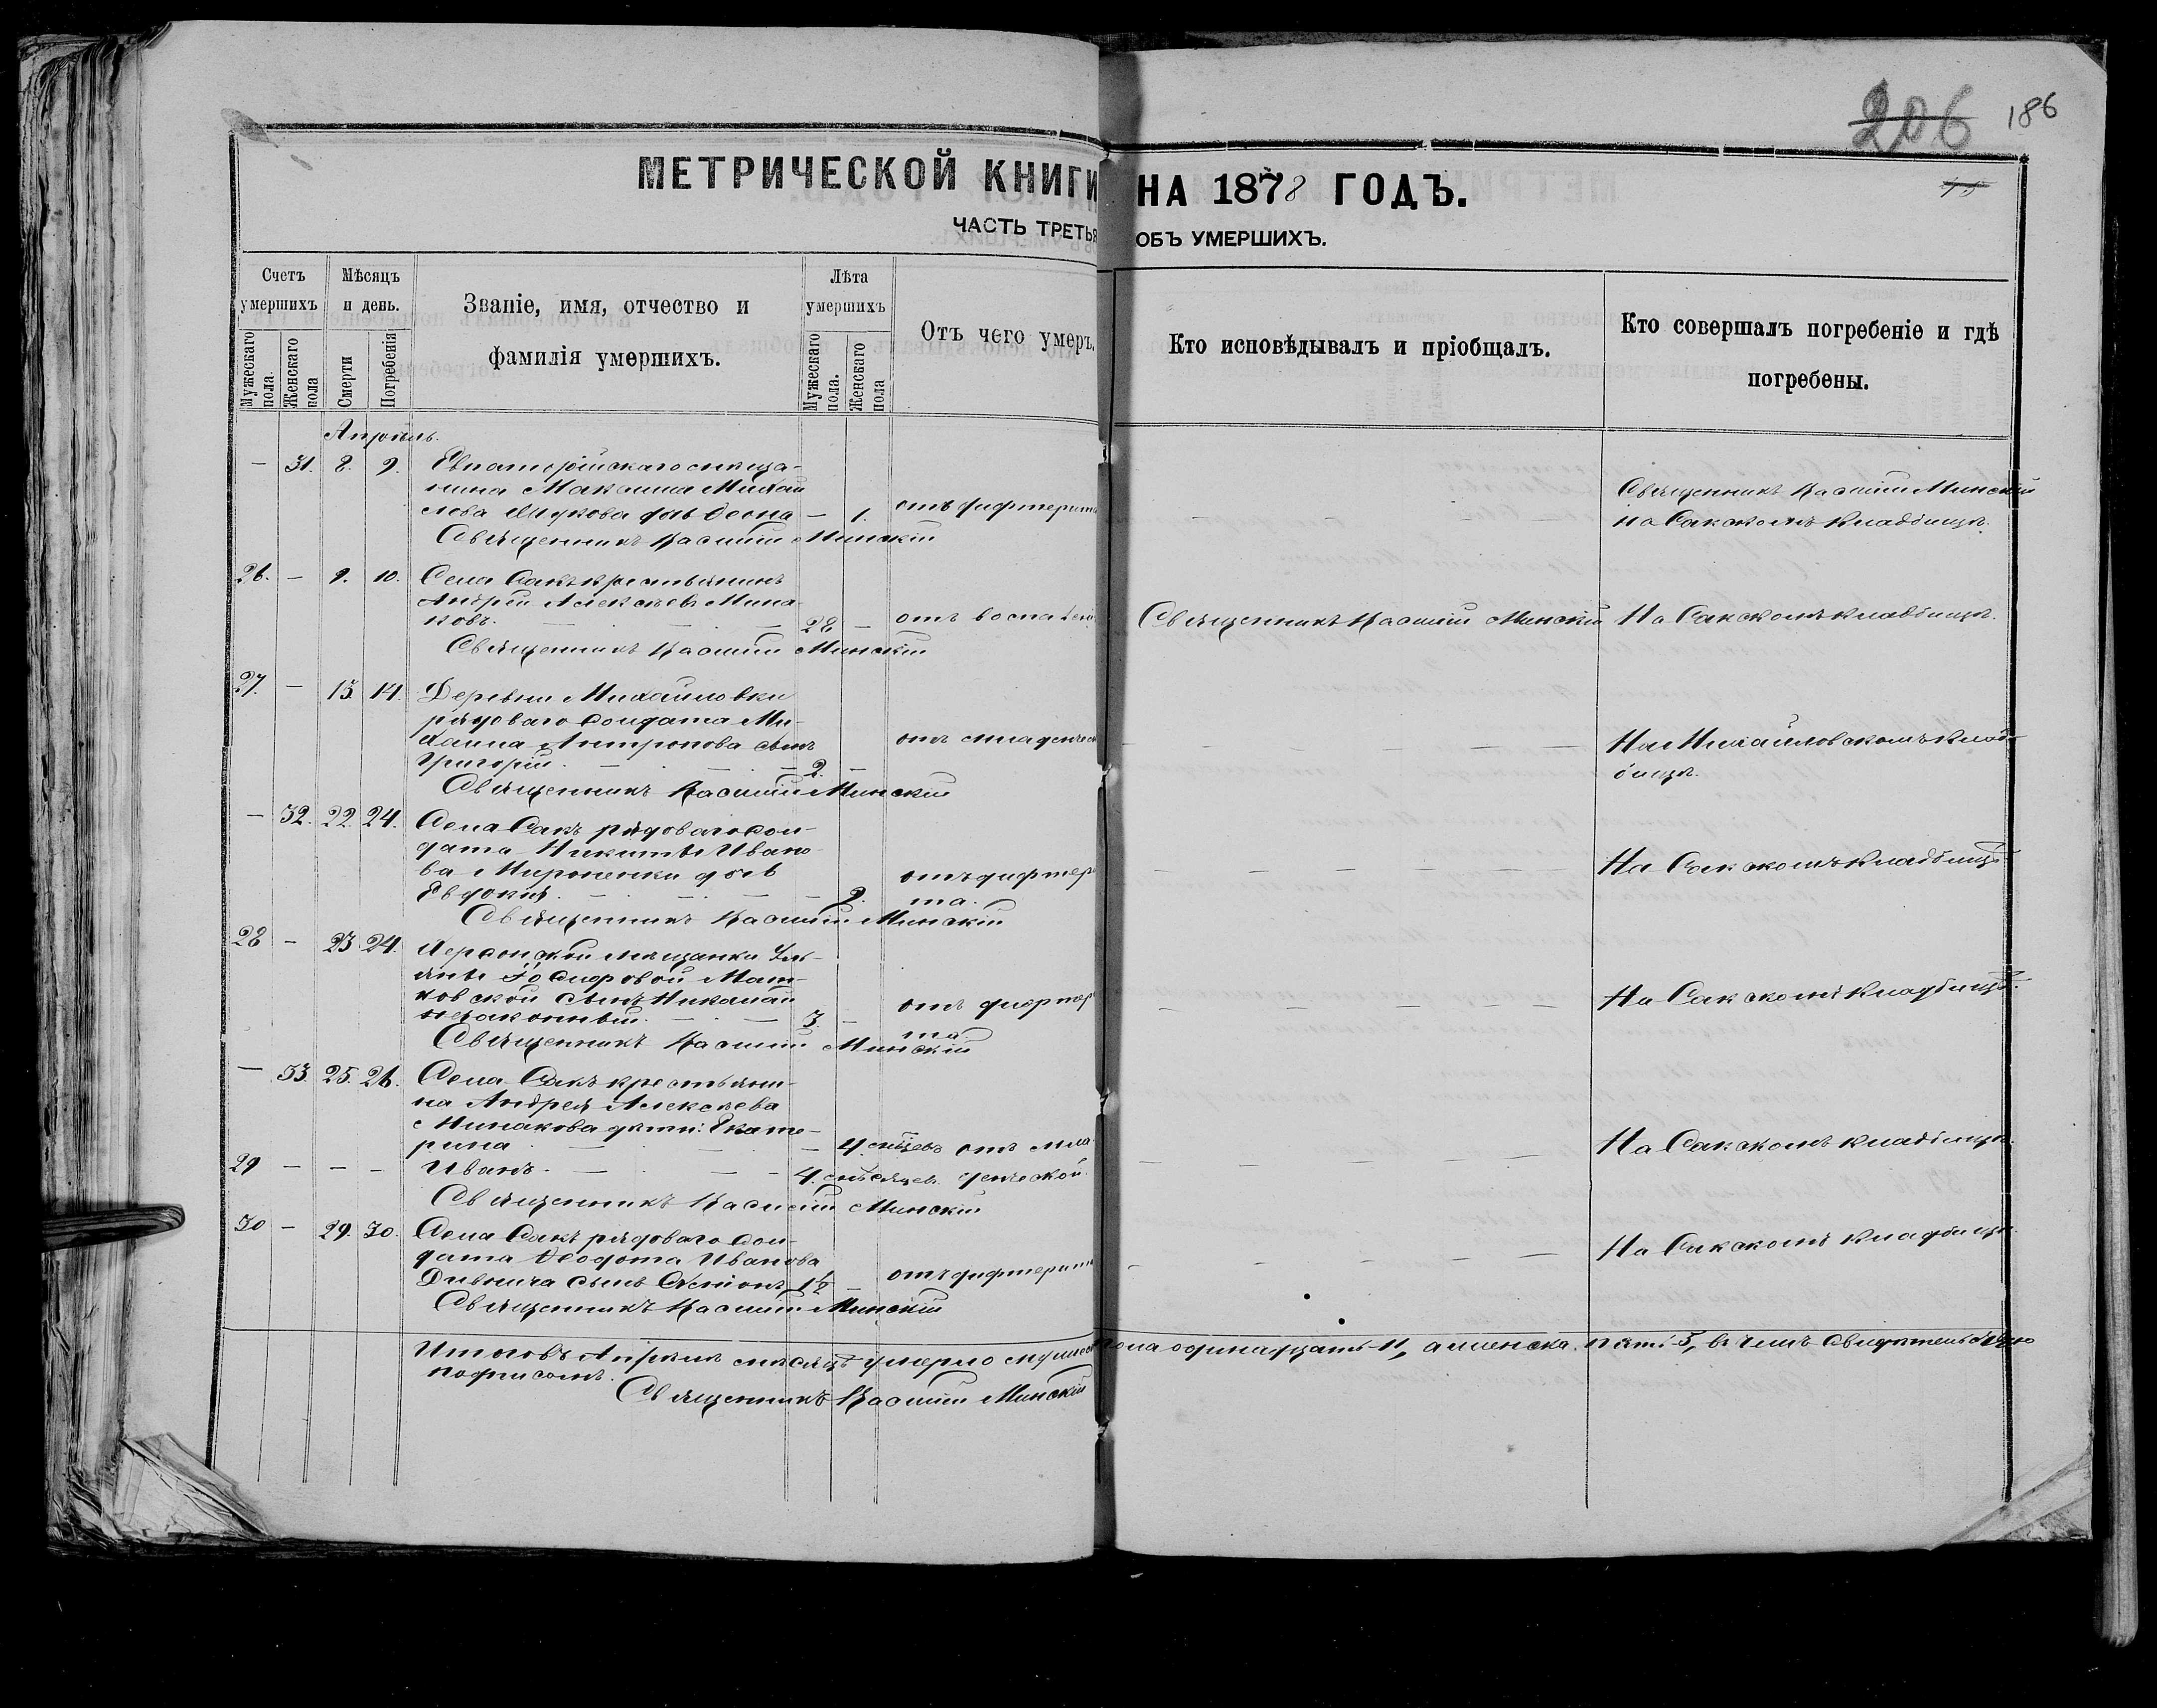 206 186
МЕТРИЧЕСКОЙ КНИГИ НА 1878 ГОДЪ.
ЧАСТЬ ТРЕТЬЯ ОБЪ УМЕРШИХЪ.
Счетъ умершихъ
Мужескаго пола.
Женскаго пола
Мѣсяцъ и день.
Смерти
Погребенія
Званіе, имя, отчество и
фамилія умершихъ.
Лѣта умершихъ
Мужескаго пола.
Женскаго пола
Отъ чего умеръ.
Кто исповѣдывалъ и пріобщалъ.
Кто совершалъ погребеніе и гдѣ
погребены.
Апрѣль.
— 31. 8. 9. Евпаторійскаго мѣща-
нина Максима Михай
лова дочь — 1. отъ дифтерит
Священникъ Василій Минскій
на Сакскомъ кладбищѣ.
Священникъ Василій Минскій
26. — 9. 10. Села Сакъ крестьянинъ
Андрей Алексѣевъ Мина-
ковъ. — 28 — отъ воспален Священникъ Василій Минскій На Сакскомъ кладбищѣ.
Священникъ Василій Минскій
27. — 13. 14. Деревни Михайловки
рядоваго солдата Ми-
хаила Антропова сынъ отъ младенческ
Григорій. — 2. —
На Михайловскомъ клад-
бищѣ.
Священникъ Василій Минскій
— 32. 22. 24. Села Сакъ рядоваго сол-
дата Никиты Ивано-
ва Мироненки дочь отъ дифтер
Евдокія. — 2. та.
На Сакскомъ кладбищѣ.
Священникъ Василій Минскій
28 — 23. 24. Херсонской мѣщанки Уль-
яны Іосифовой Мат-
ковской сынъ Николай отъ дифтер
незаконный. — 3. — та.
На Сакскомъ кладбищѣ.
Священникъ Василій Минскій
— 33. 25. 26. Села Сакъ крестьяни-
на Андрея Алексѣева
Минакова дѣти: Екате-
рина — 4. мѣсяцевъ отъ мла-
На Сакскомъ кладбищѣ.
29 — — — Иванъ. — 4. мѣсяцевъ денческой.
Священникъ Василій Минскій
30 — 29. 30. Села Сакъ рядоваго сол-
дата Ѳеодота Иванова
сынъ 1½ — отъ дифтерит
На Сакскомъ кладбищѣ.
Священникъ Василій Минскій
Итого въ Апрѣлѣ мѣсяцѣ умерло мужеск пола одинадцать 11, а женска. пять 5, въ чемъ свидѣтельствую
подписомъ.
Священникъ Василій Минскій